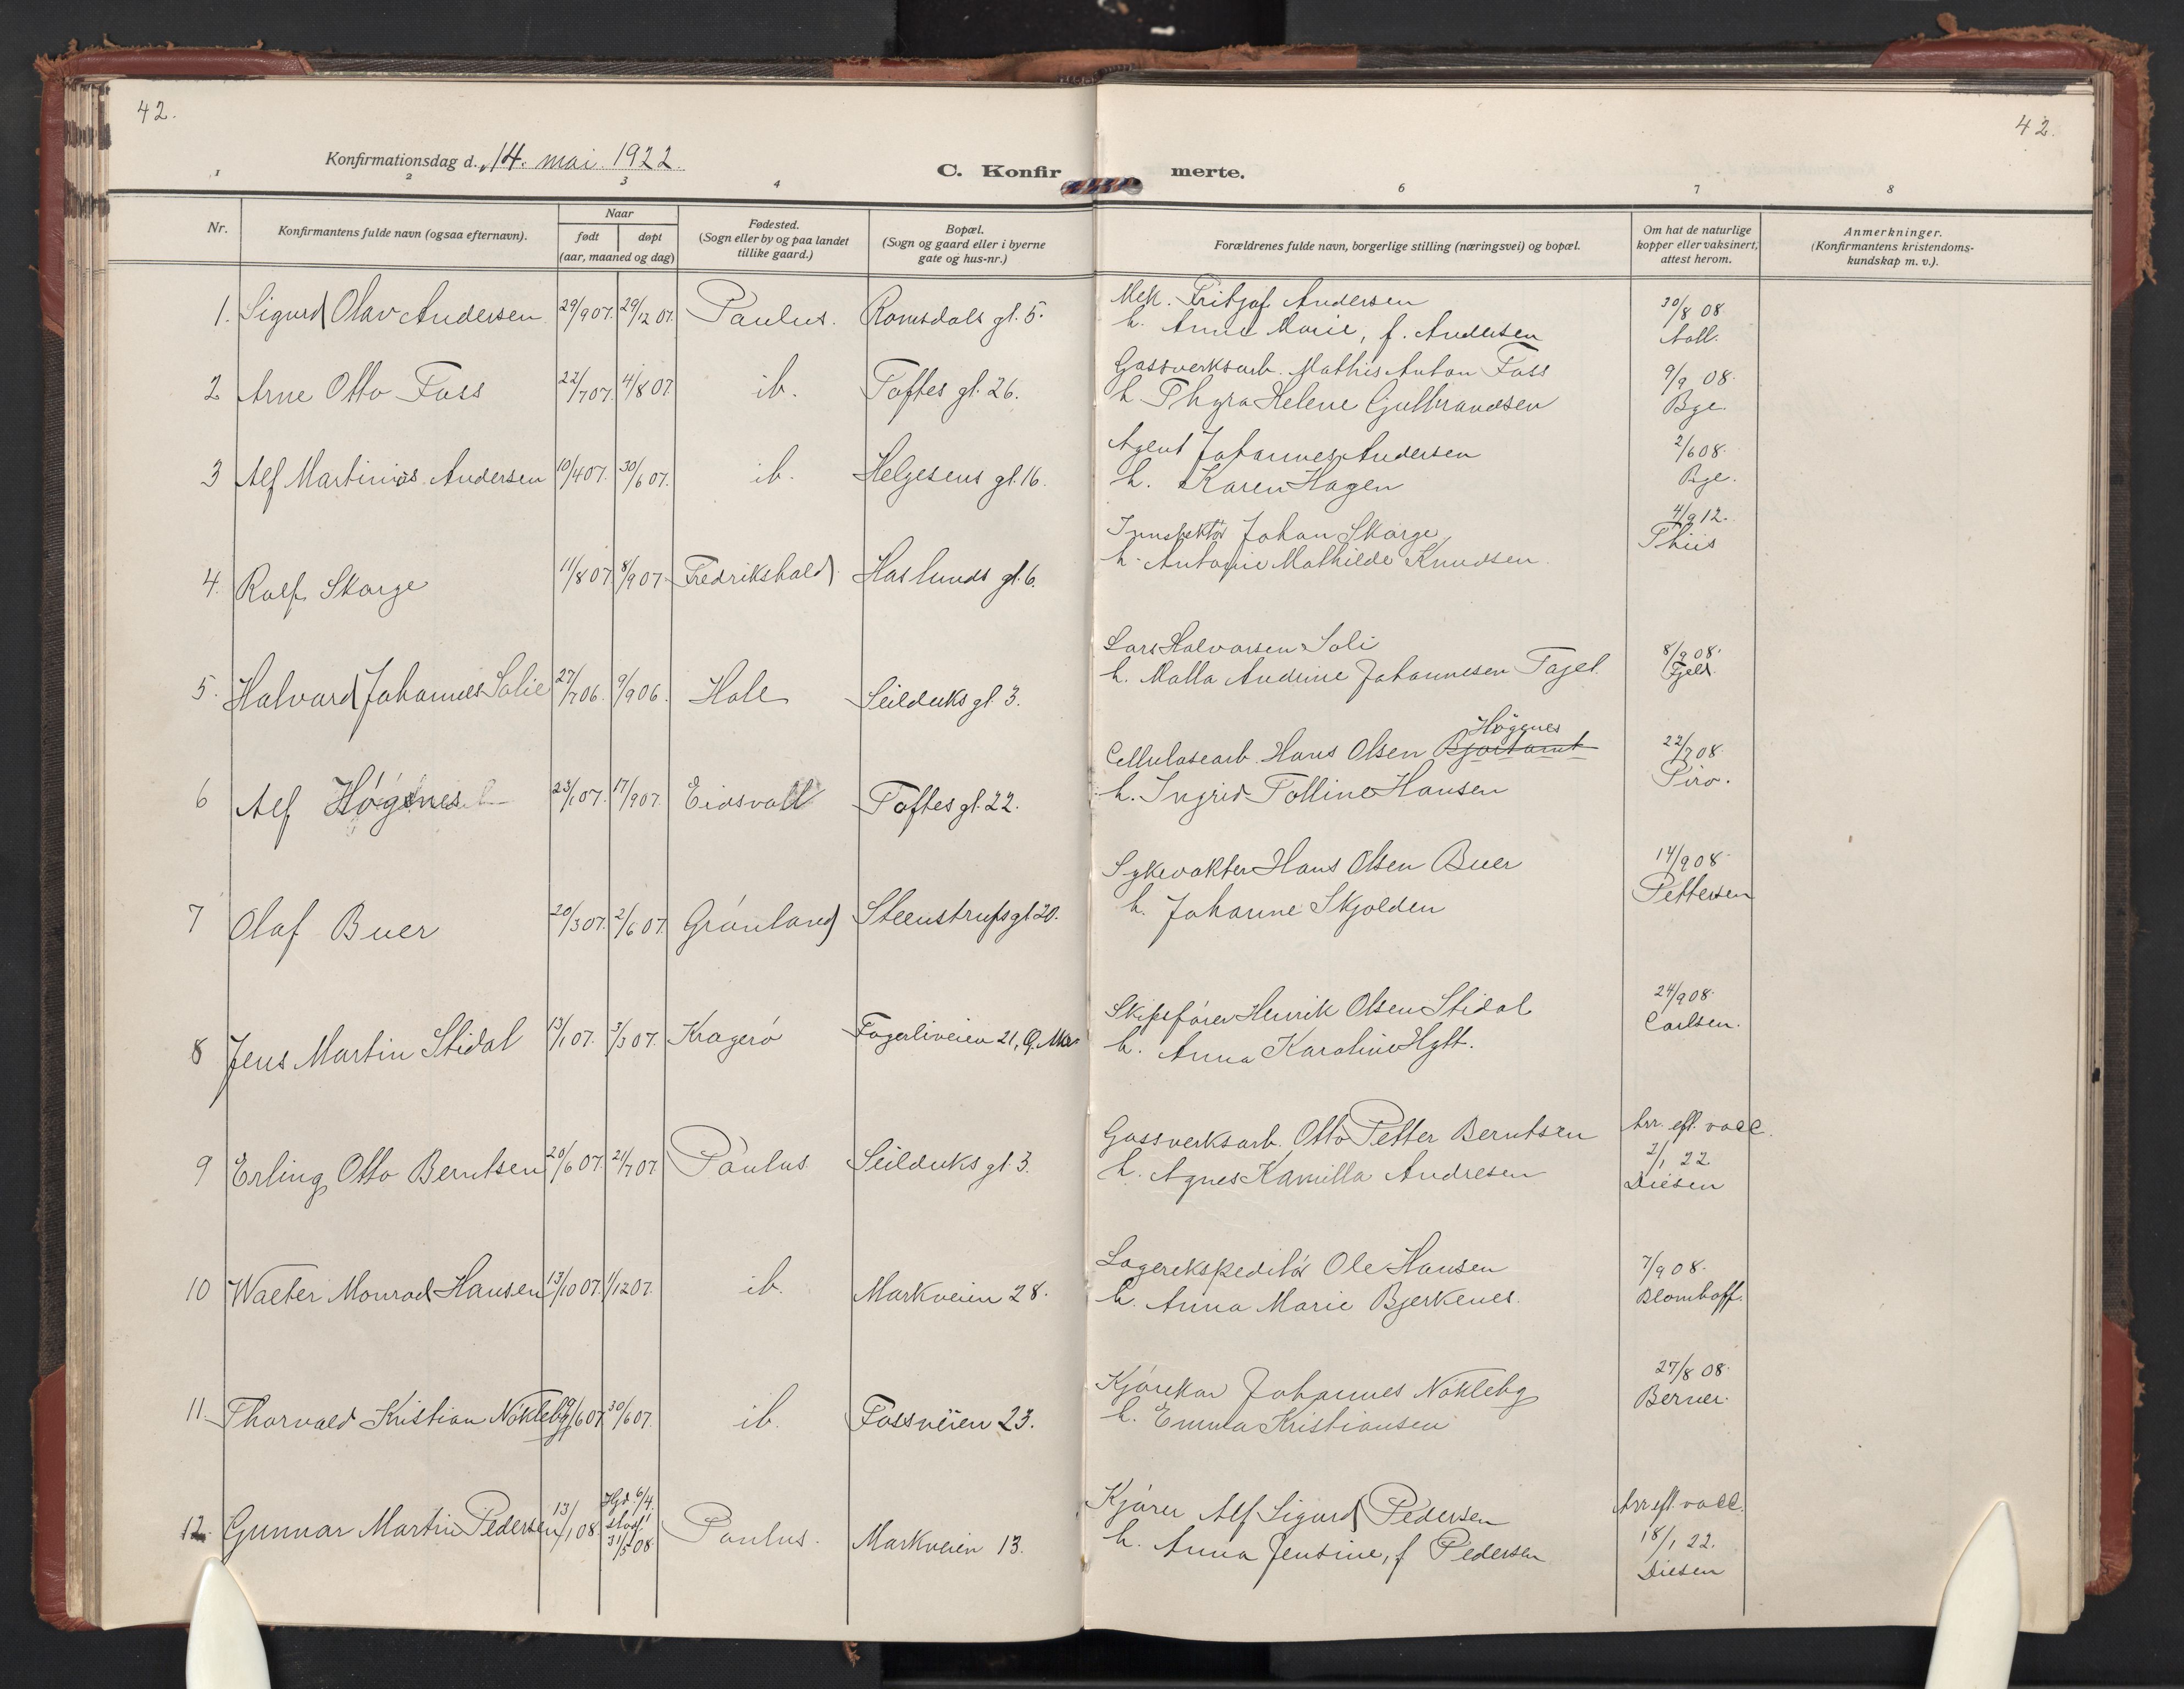 42.
42.
Konfirmationsdag d. 14. mai. 1922.
C. Konfir merte.
1 2 3 4 6 7 8
Nr.
Konfirmantens fulde navn (ogsaa efternavn).
Naar
født
døpt
(aar, maaned og dag)
Fødested.
(Sogn eller by og paa landet
tillike gaard.)
Bopæl.
(Sogn og gaard eller i byerne
gate og hus-nr.)
Forældrenes fulde navn, borgerlige stilling (næringsvei) og bopæl.
Om hat de naturlige
kopper eller vaksinert,
attest herom.
Anmerkninger.
(Konfirmantens kristendoms-
kundskap m. v.).
1. Sigurd Olav Andersen 29/9 07. 29/12 07. Paulus. Romsdals gt. 5.
Mek. Fritjof Andersen
h. Anna Marie, f. Andersen
30/8 08
Aall.
2 Arne Otto Foss 22/7 07. 4/8 07. ib. Toftes gt. 26.
Gassverksarb. Mathis Anton Foss
h. Thyra Helene Gulbrandsen
9/9 08.
Bge.
3 Alf Martinius Andersen 10/4 07. 30/6 07. ib. Helgesens gt. 16.
Agent Johannes Andersen
h. Karen Hagen
2/6 08.
Bge.
4. Rolf Skarge 11/8 07. 8/9 07. Fredrikshald Haslunds gt. 6.
Innspektør Johan Skarge
h. Antonie Mathilde Knudsen.
4/9 12.
Thiis
5. Halvard Johannes Solie 27/7 06. 9/9 06. Hole Seilduks gt. 3.
Lars Halvorsen Soli
h. Malla Andrine Johannesen Fagel.
8/9 08.
Fjeld.
6 Alf Høgsnes 23/1 07. 17/9 07. Eidsvoll Toftes gt. 22.
Høgsnes
Cellulosearb. Hans Olsen
h. Ingrid Tolline Hansen
22/7 08.
Piro.
7 Olaf Buer 20/3 07. 2/6 07. Grønland Steenstrups gt. 20.
Sykevokter Hans Olsen Buer
h. Johanne Skjolden
14/9 08.
Pettersen
8 Jens Martin Stidal 13/1 07. 3/3 07. Kragerø Fagerliveien 21, Ø. Aker
Skipsfører Henrik Olsen Stidal
h. Anna Karoline Hytt.
24/9 08.
Carlsen.
9 Erling Otto Berntsen 20/6 07. 21/7 07. Paulus Seilduks gt. 3.
Gassverksarb. Otto Petter Berntsen
h. Agnes Kamilla Andresen
Arr. eft. vacc.
2/1 22
Diesen
10 Walter Monrad Hansen 13/10 07. 1/12 07. ib. Markveien 28.
Lagerekspeditør Ole Hansen
h. Anna Marie Bjerkenes.
7/9 08.
Blomhoff.
11. Thorvald Kristian Nøkleby /6 07. 30/6 07. ib. Fossveien 23.
Kjørekar Johannes Nøkleby
h. Emma Kristiansen
27/8 08.
Berner.
12. Gunnar Martin Pedersen 13/1 08. Hjd. 6/4. stadf. 31/5 08. Paulus. Markveien 13.
Kjører Alf Sigurd Pedersen
h. Anna Jensine, f. Pedersen
Arr. eft. vacc.
18/1 22.
Diesen